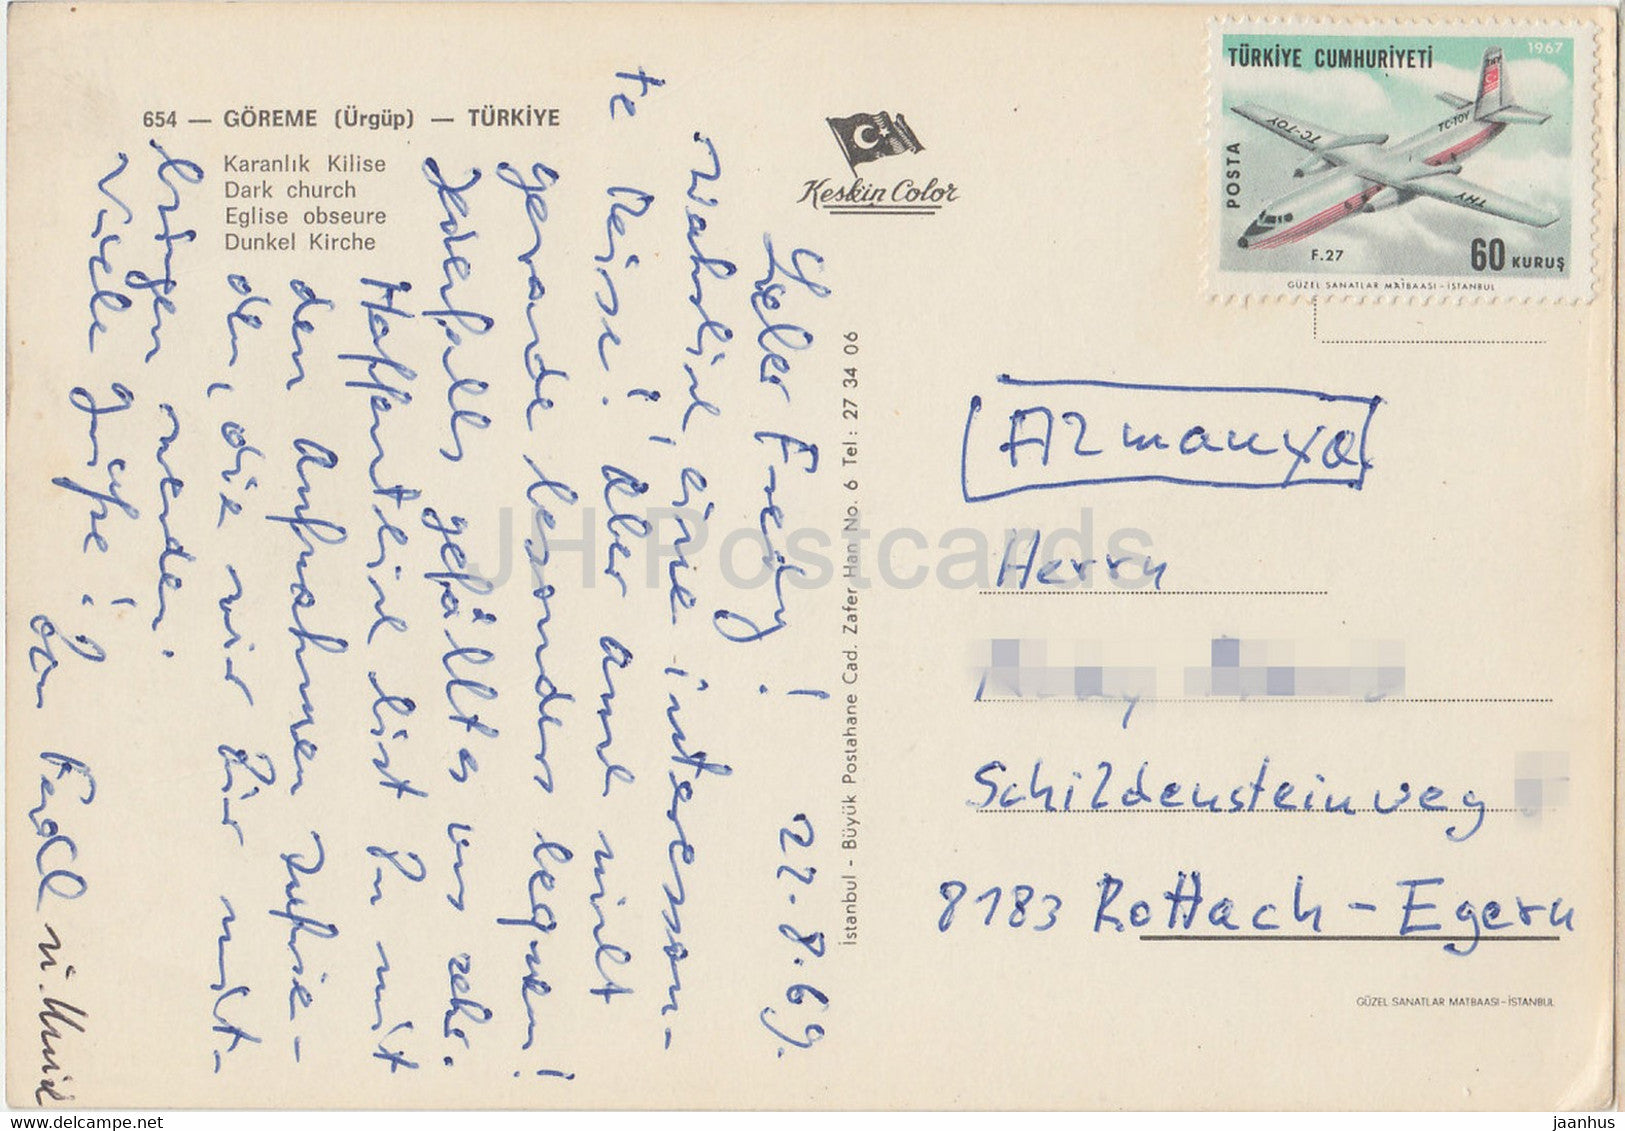 654 — GÖREME (Ürgüp) — TÜRKİYE
Karanlık Kilise
Dark church
Eglise obseure
Dunkel Kirche
Keskin Color
İstanbul - Büyük Postahane Cad. Zafer Han No. 6 Tel : 27 34 06
TÜRKİYE CUMHURİYETİ
1967
POSTA
THY
TC-TOY
TC-TOY
THY
F.27
60 KURUŞ
GÜZEL SANATLAR MATBAASI - İSTANBUL
22.8.69.
Lieber Fredy!
Wahrlich eine interessan-
te Reise! Aber auch nicht
gerade besonders bequem!
Jedenfalls gefällt es uns sehr.
Hoffentlich bist Du mit
den Aufnahmen zufrie-
den, die wir Dir mit-
bringen werden.
Viele Grüße! Dein Ferdl u.
Almanya
Herrn
Schildensteinweg
8183 Rottach-Egern
GÜZEL SANATLAR MATBAASI - İSTANBUL
JH Postcards
www.delcampe.net
jaanhus